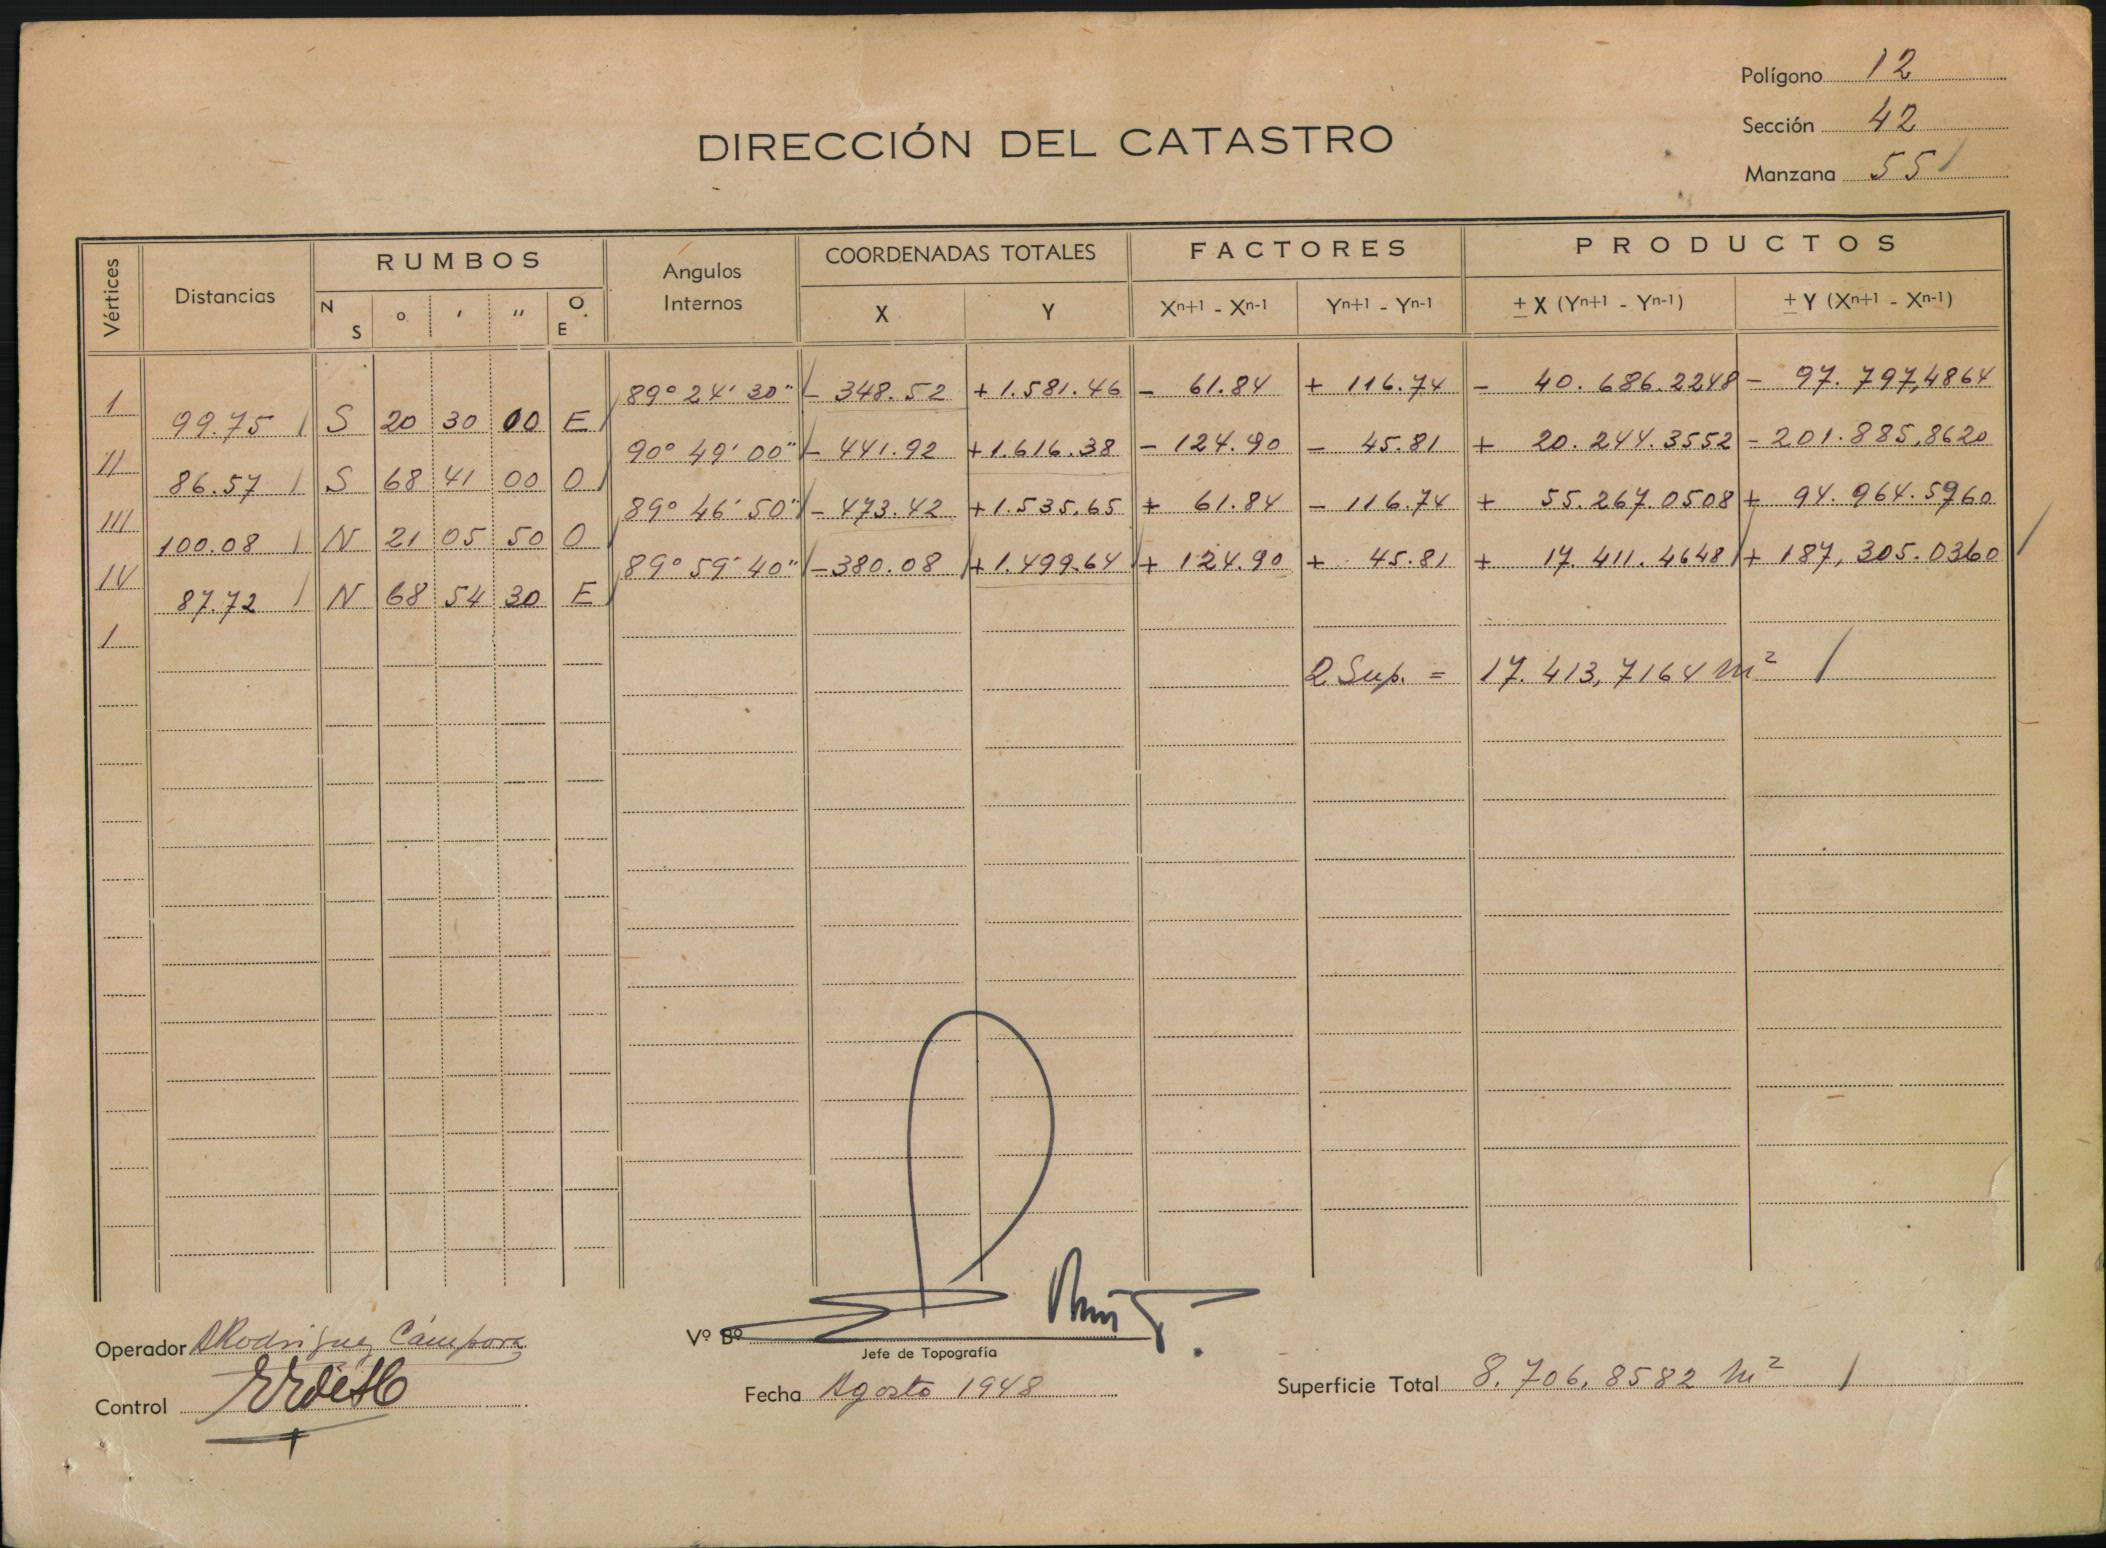 Polígono 12
Sección 42
Manzana 55
DIRECCIÓN DEL CATASTRO
Vértices Distancias RUMBOS Angulos Internos COORDENADAS TOTALES FACTORES PRODUCTOS
N S o ' " O. E X Y Xn+1 - Xn-1 Yn+1 - Yn-1 ± X (Yn+1 - Yn-1) ± Y (Xn+1 - Xn-1)
I 89° 24' 30" - 348.52 + 1.581.46 - 61.84 + 116.74 - 40.686.2248 - 97.797,4864
99.75 S 20 30 00 E
II 90° 49' 00" - 441.92 + 1.616.38 - 124.90 - 45.81 + 20.244.3552 - 201.885,8620
86.57 S 68 41 00 O
III 89° 46' 50" - 473.42 + 1.535.65 + 61.84 - 116.74 + 55.267.0508 + 94.964.5960
100.08 N 21 05 50 O
IV 89° 59' 40" - 380.08 + 1.499.64 + 124.90 + 45.81 + 17.411.4648 + 187,305.0360
87.72 N 68 54 30 E
I
2 Sup. = 17.413,7164 m²
Operador Rodriguez Cámpora
Vº Bº
Jefe de Topografía
Control
Fecha Agosto 1948
Superficie Total 8.706,8582 m²